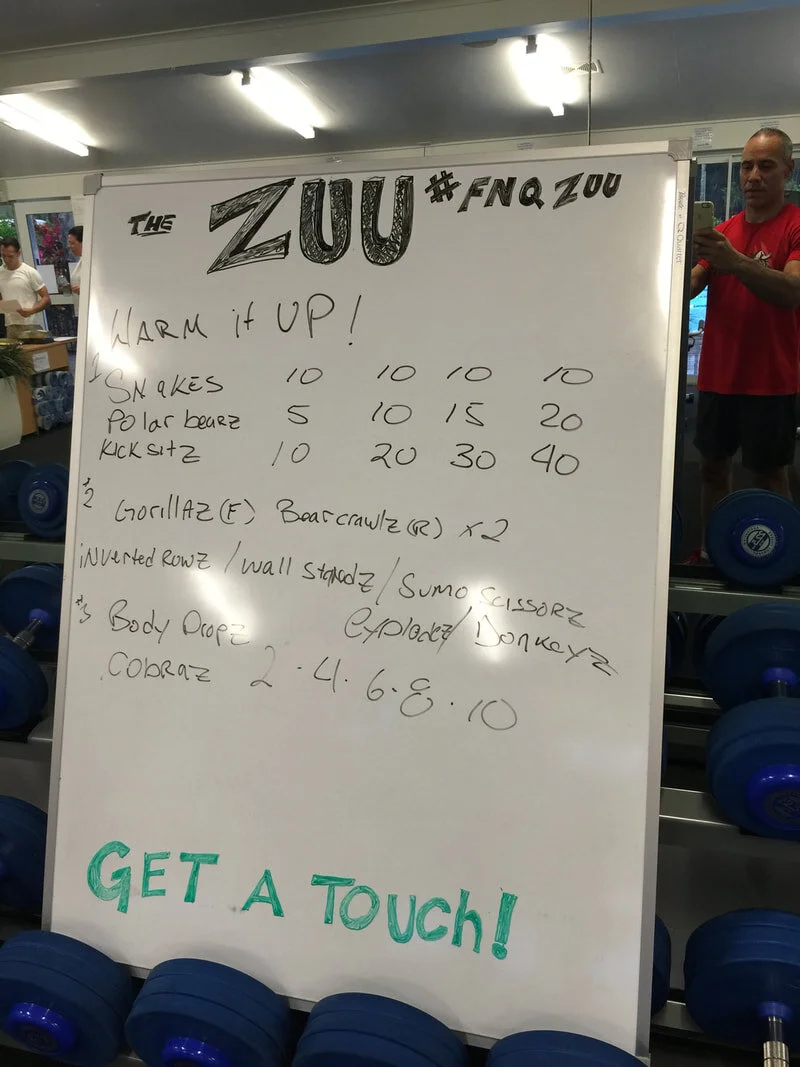 THE ZUU #FNQZUU
WARM it UP!
1 SNaKES 10 10 10 10
Polar bearz 5 10 15 20
KICK SitZ 10 20 30 40
*2 GorillAZ (F) Bearcrawlz (R) x2
iNverted Rowz / Wall Standz / SUMO SCISSORZ
*3 Body Dropz Explodez / Donkeyz
CobraZ 2 · 4 · 6 · 8 · 10
GET A TOUCh!